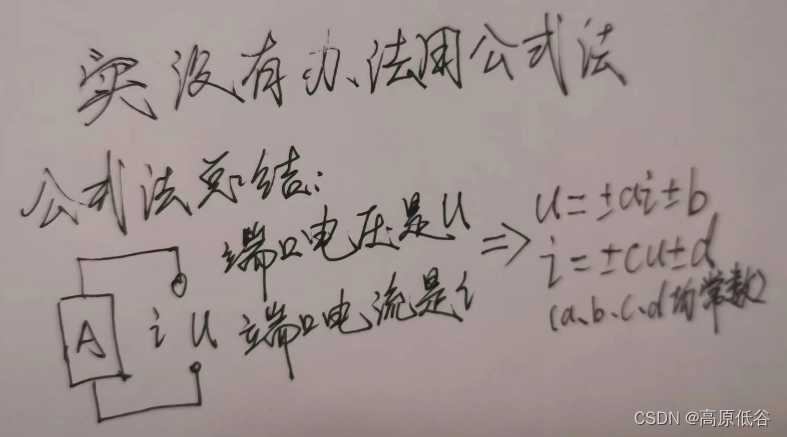 实没有办法用公式法
公式法总结:
端口电压是u
端口电流是i
A i u
⇒ u=±ai±b
i=±cu±d
(a、b、c、d均常数)
CSDN @高原低谷